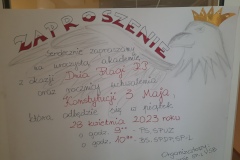 ZAPROSZENIE
Serdecznie zapraszamy
na uroczystą akademię
z okazji Dnia Flagi RP
oraz rocznicy uchwalenia
Konstytucji 3 Maja,
która odbędzie się w piątek
28 kwietnia 2023 roku
o godz. 8
o godz. 10
Organizatorzy